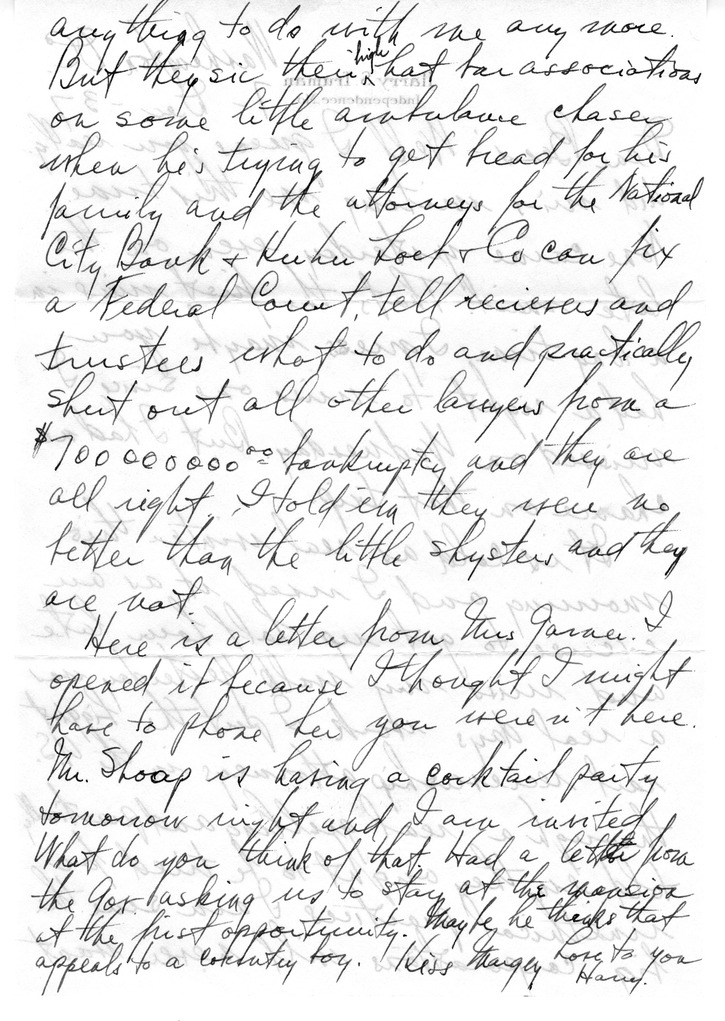 anything to do with me any more.
But they sic their high hat bar associations
on some little ambulance chaser
when he's trying to get bread for his
family and the attorneys for the National
City Bank & Kuhn Loeb & Co can fix
a Federal Court, tell recievers and
trustees what to do and practically
shut out all other lawyers from a
$700 000 000 00 bankruptcy and they are
all right. I told em they were no
better than the little shysters and they
are not.
Here is a letter from Mrs Garner. I
opened it because I thought I might
have to phone her you weren't here.
Mr. Shoap is having a cocktail party
tomorrow night and I am invited
What do you think of that. Had a letter from
the Gov asking us to stay at the mansion
at the first opportunity. Maybe he thinks that
appeals to a country boy. Kiss Margey love to you
Harry.
Harry S. Truman
Independence